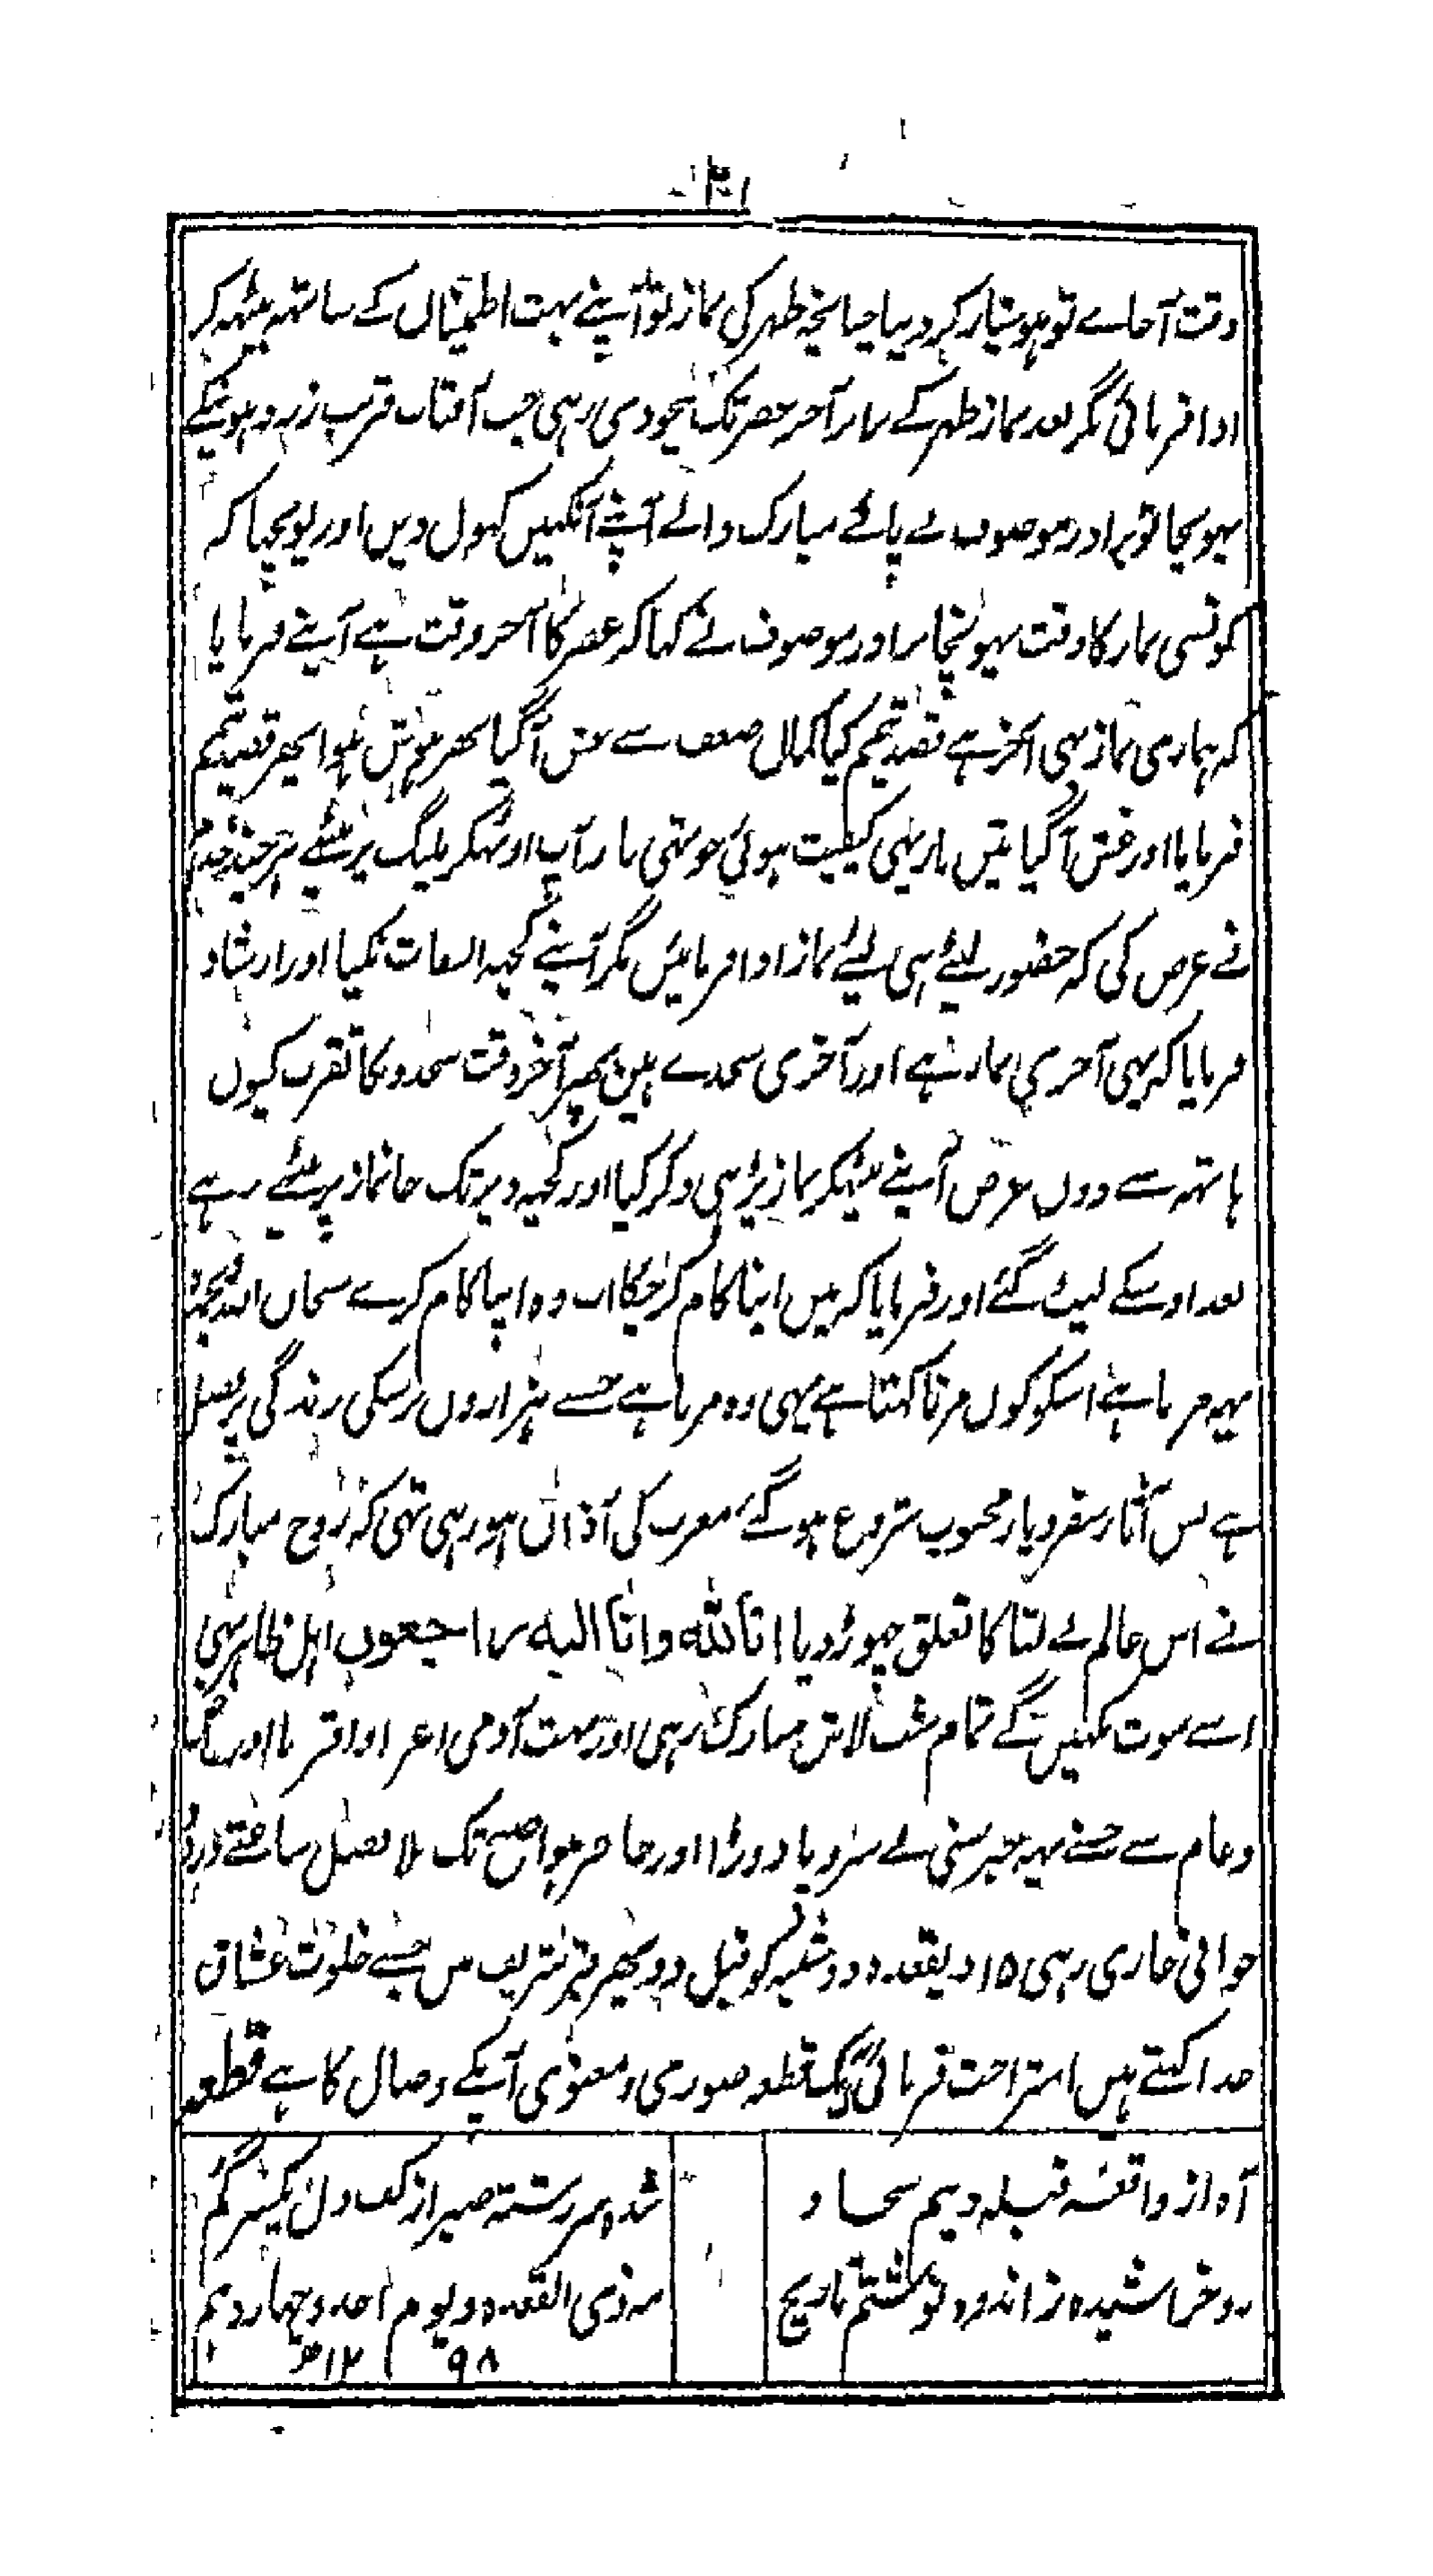 وقت آجاے تو ہوشیار کر دینا چنانچہ ظہر کی نماز تو آپنے بہت اطمینان کے ساتھ بیٹھکر
ادا فرمائی مگر بعد نماز ظہر کے برابر آخر عصر تک بیخودی رہی جب آفتاب قریب زرد ہونیکے
پہونچا تو برادر موصوف نے پائے مبارک دابے آپنے آنکہیں کہول دیں اور پوچھا کہ
کونسی نماز کا وقت پہونچا برادر موصوف نے کہا کہ عصر کا آخر وقت ہے آپنے فرمایا
کہ ہماری نماز بہی آخر ہے قصد تیمم کیا کمال ضعف سے غش آگیا پھر ہوش ہوا پھر قصد تیمم
فرمایا اور غش آگیا تین بار یہی کیفیت ہوئی چوتہی بار آپ اوٹہکر پلنگ پر بیٹھے ہر چند خدام
نے عرض کی کہ حضور لیٹے ہی لیٹے نماز ادا فرمائیں مگر آپنے کچھ التفات نکیا اور ارشاد
فرمایا کہ یہی آخری نماز ہے اور آخری سجدے ہیں پھر آخر وقت سجدونکا تقرب کیوں
ہاتھ سے دوں غرض آپنے بیٹھکر نماز پڑہی ذکر کیا اور کچھ دیر تک جانماز پر بیٹھے رہے
بعد اوسکے لیٹ گئے اور فرمایا کہ میں اپنا کام کرچکا اب وہ اپنا کام کرے سبحان اللہ
یہہ مرنا ہے اسکو کون مرنا کہتا ہے یہی وہ مرنا ہے جسے ہزاروں برسکی زندگی پر فضل
ہے بس آثار سفر دیار محبوب شروع ہو گئے مغرب کی آذان ہو رہی تہی کہ روح مبارک
نے اس عالم بے بقا کا تعلق چھوڑ دیا انا للہ وانا الیہ راجعون اہل ظاہر یہی
اسے موت کہیں گے تمام شب لاش مبارک رہی اور بہت آدمی اعزا و اقربا اور
و عام سے جسنے یہہ خبر سنی بے سروپا دوڑا اور حاضر ہوا صبح تک بلا فصل ساختے درود
خوانی جاری رہی ۱۵ ذیقعدہ دوشنبہ کو قبل دوپہر قبر شریف میں جسے خلوت عشاق
خدا کہتے ہیں استراحت فرمائی یک قطعہ صوری و معنوی آپکے وصال کا ہے قطعہ
آہ از واقعۂ قبلہ دیم سجاد
شدہ سررشتہ صبر از کف دل یکسر گم
رو خراشیدہ ز اندوہ نوشتم تاریخ
مہ ذی القعدہ و یوم احد و چہاردہم
۱۲۹۸